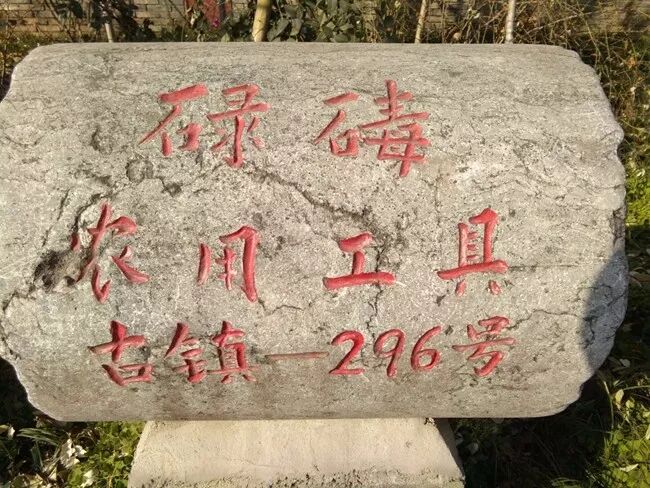 碌碡
农用工具
古镇—296号